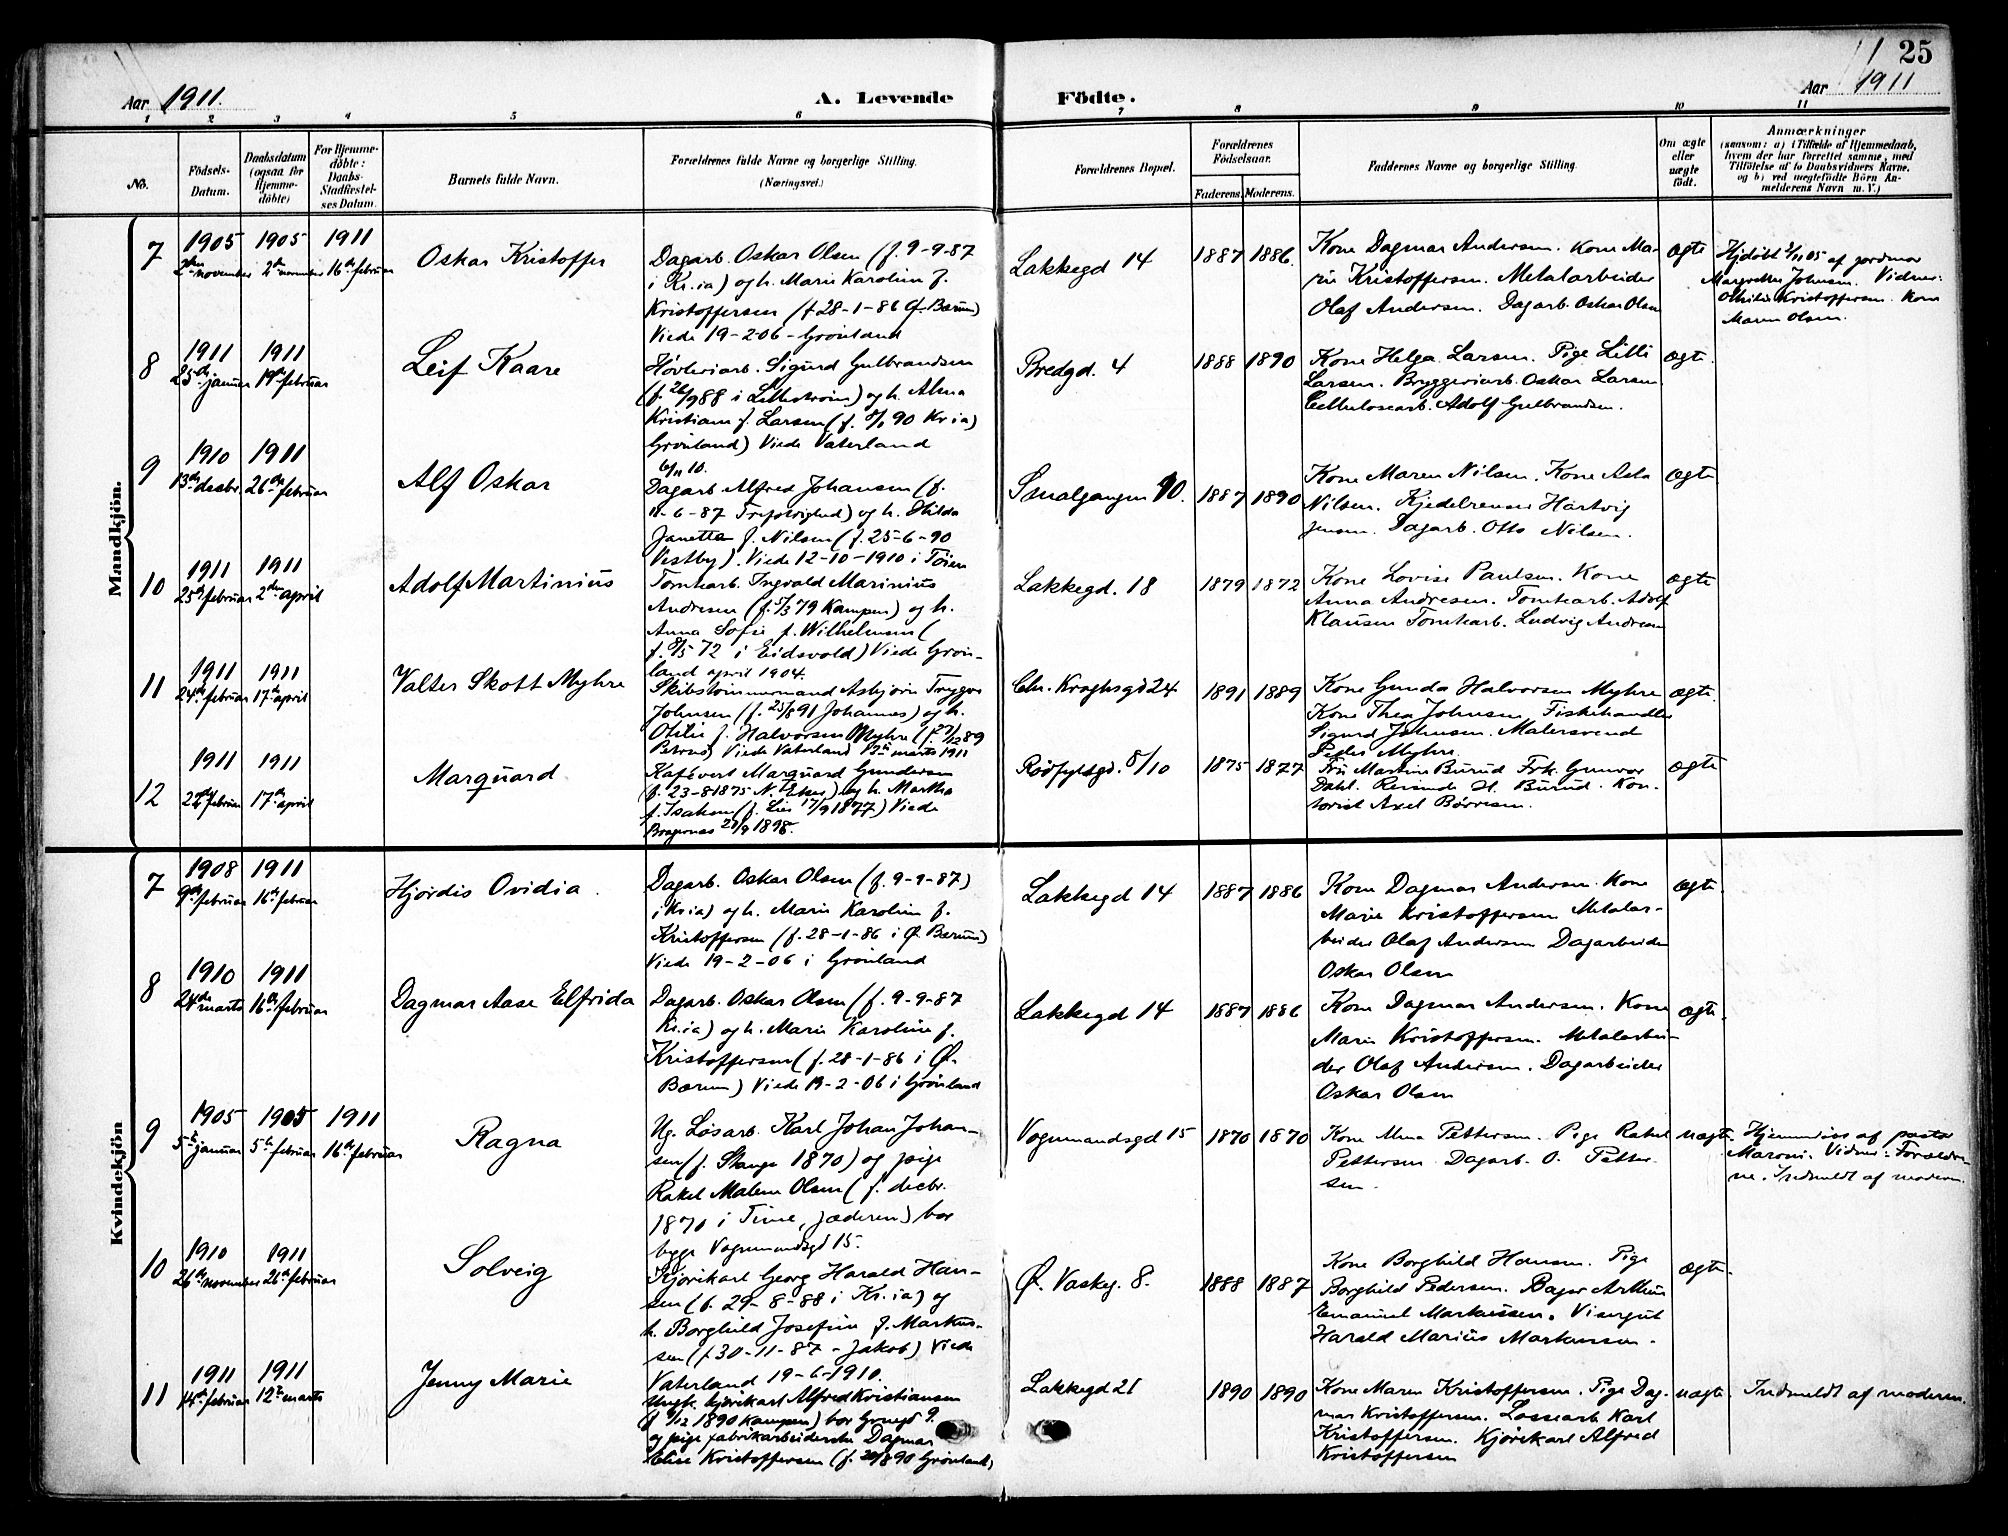 25
Aar 1911.
A. Levende Födte.
Aar 1911
1 2 3 4 5 6 7 8 9 10 11
No.
Födsels-Datum.
Daabsdatum (ogsaa for Hjemme-döbte)
For Hjemme-döbte: Daabs-Stadfæstel-ses Datum.
Barnets fulde Navn.
Forældrenes fulde Navne og borgerlige Stilling.
(Næringsvei.)
Forældrenes Bopæl.
Forældrenes Födselsaar.
Faderens. Moderens.
Faddernes Navne og borgerlige Stilling.
Om ægte eller uægte födt.
Anmærkninger
(saasom: a) i Tilfælde af Hjemmedaab,
hvem der har forrettet samme, med
Tilföielse af to Daabsvidners Navne,
og b) ved uægtefödte Börn An-
melderens Navn m. V.)
Mandkjön.
7
1905 2den november
1905 2den november
1911 16de februar
Oskar Kristoffer
Dagarb. Oskar Olsen (f. 9-9-87
i Kr.ia) og h. Marie Karoline f.
Kristoffersen (f 28-1-86 Ø. Bærum)
Viede 19-2-06 - Grönland
Lakkegd 14
1887 1886.
Kone Dagmar Andersen. Kone Ma-
rie Kristoffersen. Metalarbeider
Olaf Andersen. Dagarb. Oskar Olsen
ægte
Hjdöbt 2/11 05 af jordmor
Margrethe Johnsen. Vidner:
Othilie Kristoffersen. Kone
Maren Olsen.
8
1911 25de januar
1911 19de februar
Leif Kaare
Høvleriarb. Sigurd Gulbrandsen
(f. 26/9 88 i Lilleström) og h. Alma
Kristiane f. Larsen (f. 5/1 90 Kr.ia)
Grönland) Viede Vaterland
6/11 10.
Bredgd. 4
1888 1890
Kone Helga Larsen. Pige Lilli
Larsen. Bryggeriarb. Oskar Larsen
Cellulosearb. Adolf Gulbrandsen.
ægte.
9
1910 13de decbr.
1911 26de februar
Alf Oskar
Dagarb Alfred Johansen (f.
11-6-87 Trefoldighed) og h. Hilda
Janette f. Nilsen (f. 25-6-90
Vestby). Viede 12-10-1910 i Töien
Smalgangen 10.
1887 1890
Kone Maren Nilsen. Kone Asta
Nilsen. Kjedelrenser Hartvig
Jensen. Dagarb. Otto Nilsen.
ægte
10
1911 25de februar
1911 2den april
Adolf Martinius
Tomtearb. Ingvald Marinius
Andresen (f. 5/3 79 Kampen) og h.
Anna Sofie f. Wilhelmsen (
f. 8/5 72 i Eidsvold) Viede Grön-
land april 1904.
Lakkegd. 18
1879 1872
Kone Lovise Paulsen. Kone
Anna Andresen. Tomtearb. Adolf
Klausen Tomtearb. Ludvig Andresen
ægte
11
1911 24de februar
1911 17de april
Valter Skott Myhre
Skibstömmermand Asbjörn Trygve
Johnsen (f. 25/8 91 Johannes) og h.
Otilie f. Halvorsen Myhre (f. 27/12 89
Petrus) Viede Vaterland 13de marts 1911
Chr. Kroghsgd 24
1891 1889
Kone Gunda Halvorsen Myhre
Kone Thea Johnsen. Fiskehandler
Sigurd Johnsen. Malersvend
Peder Myhre.
ægte.
12
1911 22de februar
1911 17de april
Marquard
Kafévert Marquard Gundersen
(f. 23-8 1875 N. Eker) og h. Martha
f. Isaksen (f. Lier 17/9 1877) Viede
Bragernes 27/9 1898.
Rödfyldgd. 8/10
1875 1877
Fru Martine Burud Frk. Gunvor
Dahl. Reisende H. Burud. Kon-
torist Axel Börresen.
ægte
Kvindekjön
7
1908 9de februar
1911 16de februar
Hjördis Ovidia.
Dagarb. Oskar Olsen (f. 9-9-87)
i Kr.ia) og h. Marie Karoline f.
Kristoffersen (f. 28-1-86 i Ø. Bærum)
Viede 19-2-06 i Grönland
Lakkegd 14
1887 1886
Kone Dagmar Andersen. Kone
Marie Kristoffersen Metalar-
beider Olaf Andersen Dagarbeider
Oskar Olsen
ægte.
8
1910 24de marts
1911 16de februar
Dagmar Aase Elfrida
Dagarb. Oskar Olsen (f. 9-9-87
Kr.ia) og h. Marie Karoline f.
Kristoffersen (f. 28-1-86 i Ø.
Bærum) Viede 19-2-06 i Grönland
Lakkegd 14
1887 1886
Kone Dagmar Andersen. Kone
Marie Kristoffersen. Metalarbei-
der Olaf Andersen. Dagarbeider
Oskar Olsen
ægte.
9
1905 5te januar
1905 5te februar
1911 16de februar
Ragna
Ug. Løsarb. Karl Johan Johan-
sen (f. Stange 1870) og pige
Rakel Malene Olsen (f. decbr.
1870 i Time, Jæderen) bor
begge Vognmandsgd 15.
Vognmandsgd 15
1870 1870
Kone Alma Pettersen. Pige Rakel
Pettersen Dagarb. O. Petter-
sen.
uægte.
Hjemmedös af pastor
Maroni. Vidner: Forældre-
ne. Indmeldt af moderen.
10
1910 26de november
1911 26de februar
Solveig
Kjörekarl Georg Harald Han-
sen (f. 29-8-88 i Kr.ia) og
h. Borghild Josefine f. Markus-
sen (f 30-11-87 - Jakob) Viede
Vaterland 19-6-1910.
Ø. Vaskeg. 8.
1888 1887
Kone Borghild Hansen. Pige
Borghild Pedersen. Bager Arthur
Emanuel Markussen. Visergut
Harald Marius Markussen.
ægte.
11
1911 14de februar
1911 12te marts
Jenny Marie
Ungk. kjörekarl Alfred Kristiansen
(f 9/12 1890 Kampen) bor Grøngd 9.
og pige fabrikarbeiderske Dagmar
Elise Kristoffersen (f. 29/8 90 Grönland)
Lakkegd 21
1890 1890
Kone Maren Kristoffersen. Pige Dag-
mar Kristoffersen. Lossearb Karl
Kristoffersen. Kjörekarl Alfred
Kristoffersen
uægte.
Indmeldt af moderen.